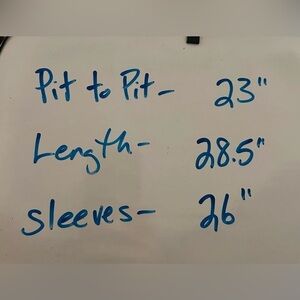 Pit to Pit- 23"
Length- 28.5"
sleeves- 26"